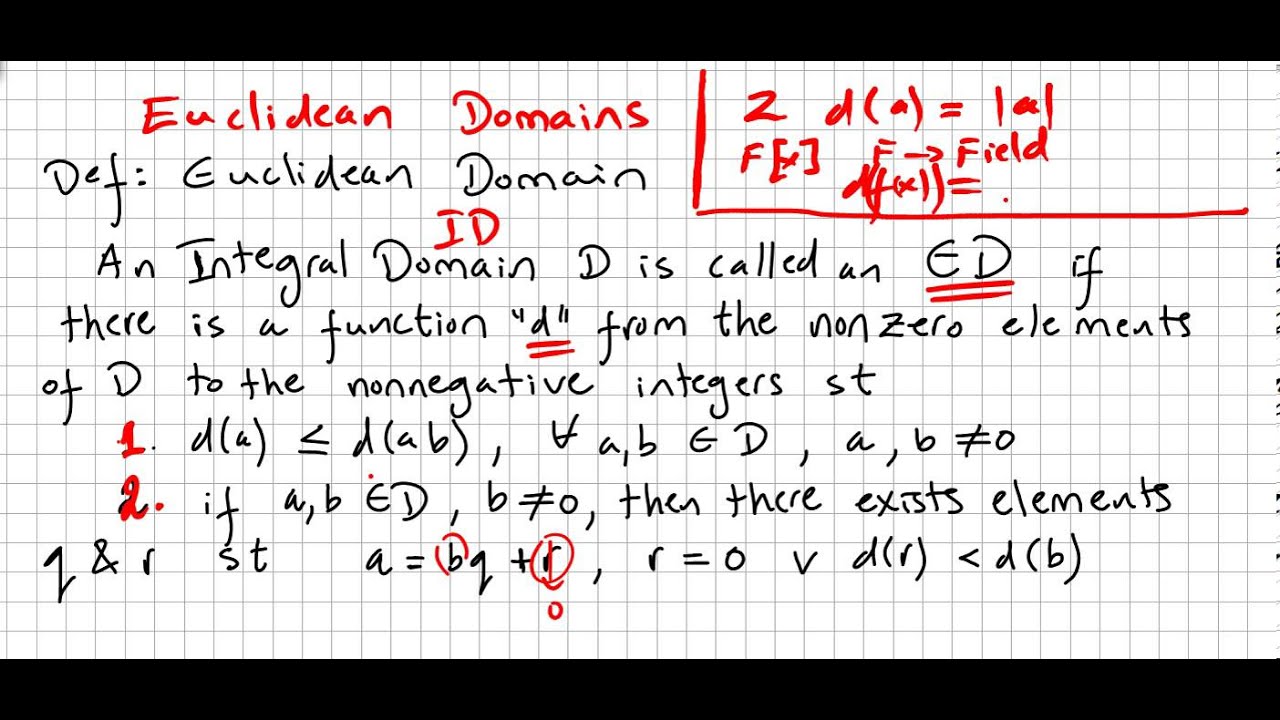 Euclidean Domains
Z d(a) = |a|
F[x] F → Field
d(f(x)) =
Def: Euclidean Domain
ID
An Integral Domain D is called an ED if
there is a function "d" from the nonzero elements
of D to the nonnegative integers st
1. d(a) ≤ d(ab), ∀ a,b ∈ D, a, b ≠ 0
2. if a,b ∈ D, b ≠ 0, then there exists elements
q & r st a = bq + r, r = 0 v d(r) < d(b)
0